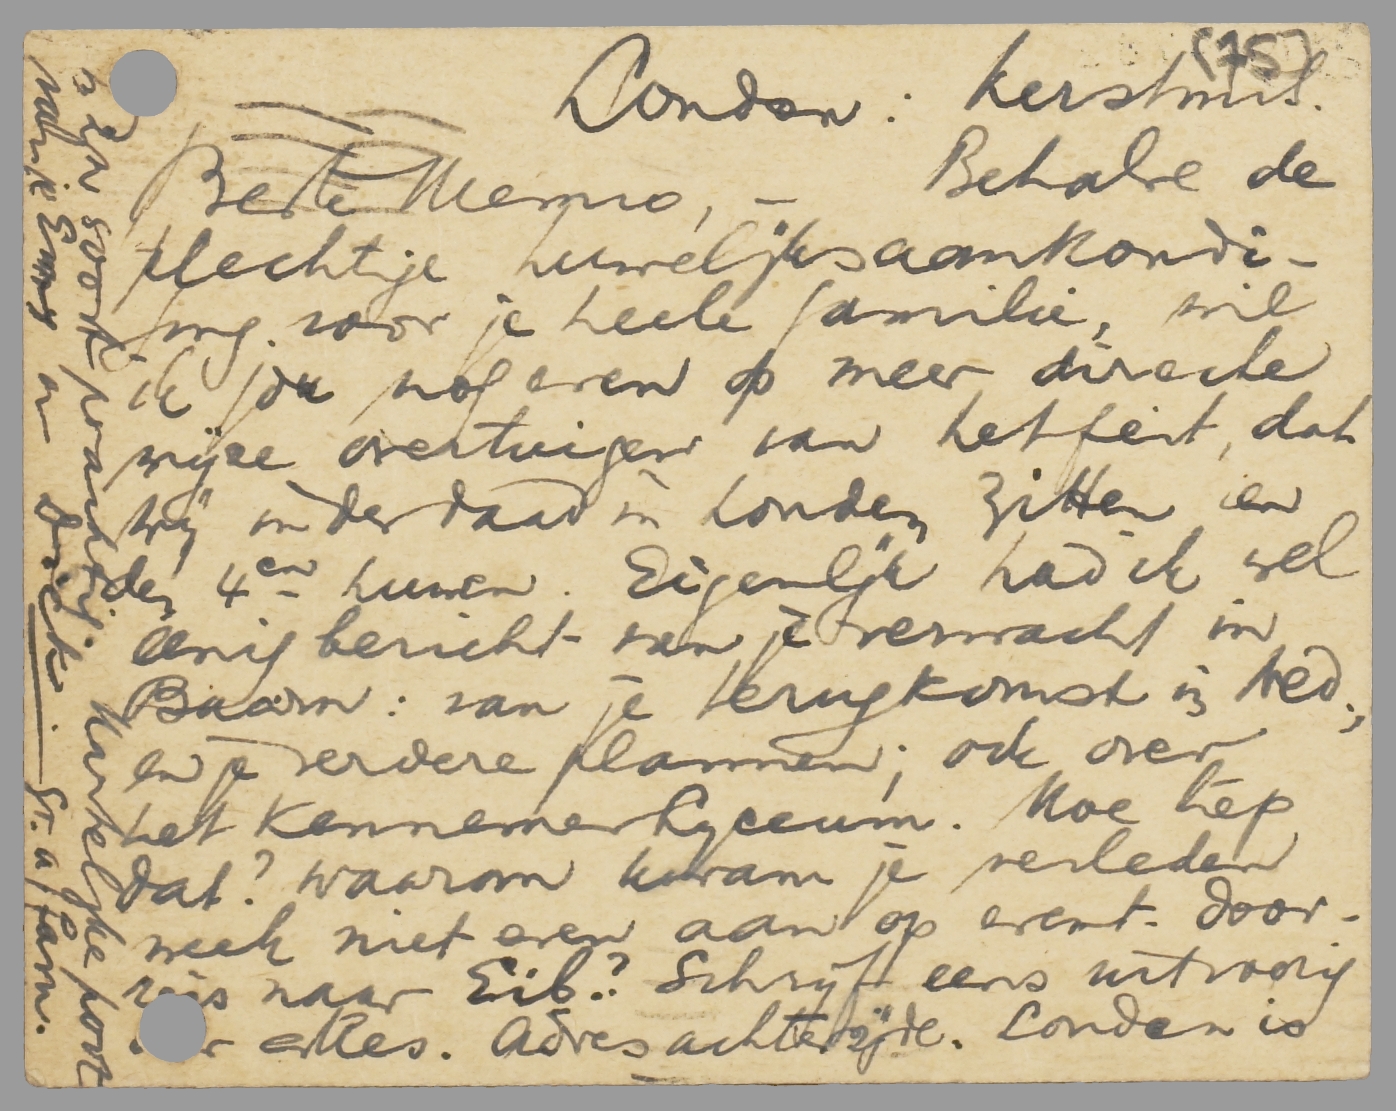 (75)
Londen: Kerstmis.
Beste Menno, – Behalve de
plechtige huwelijksaankondi-
ging voor je heele familie, wil
ik jou nog even op meer directe
wijze overtuigen van het feit, dat
wij inderdaad in Londen zitten en
den 4en huwen. Eigenlijk had ik wel
eenig bericht van je verwacht in
Baarn: van je terugkomst in Ned.,
en je verdere plannen; ook over
het Kennemerlyceum. Hoe liep
dat? Waarom kwam je verleden
week niet even aan op event. door-
reis naar Eib.? Schrijf eens uitvoerig
over alles. Adres achterzijde. Londen is
in zijn soort prachtig. Hartelijke poot
van je Emmy en
Dick. Gr. a/fam.